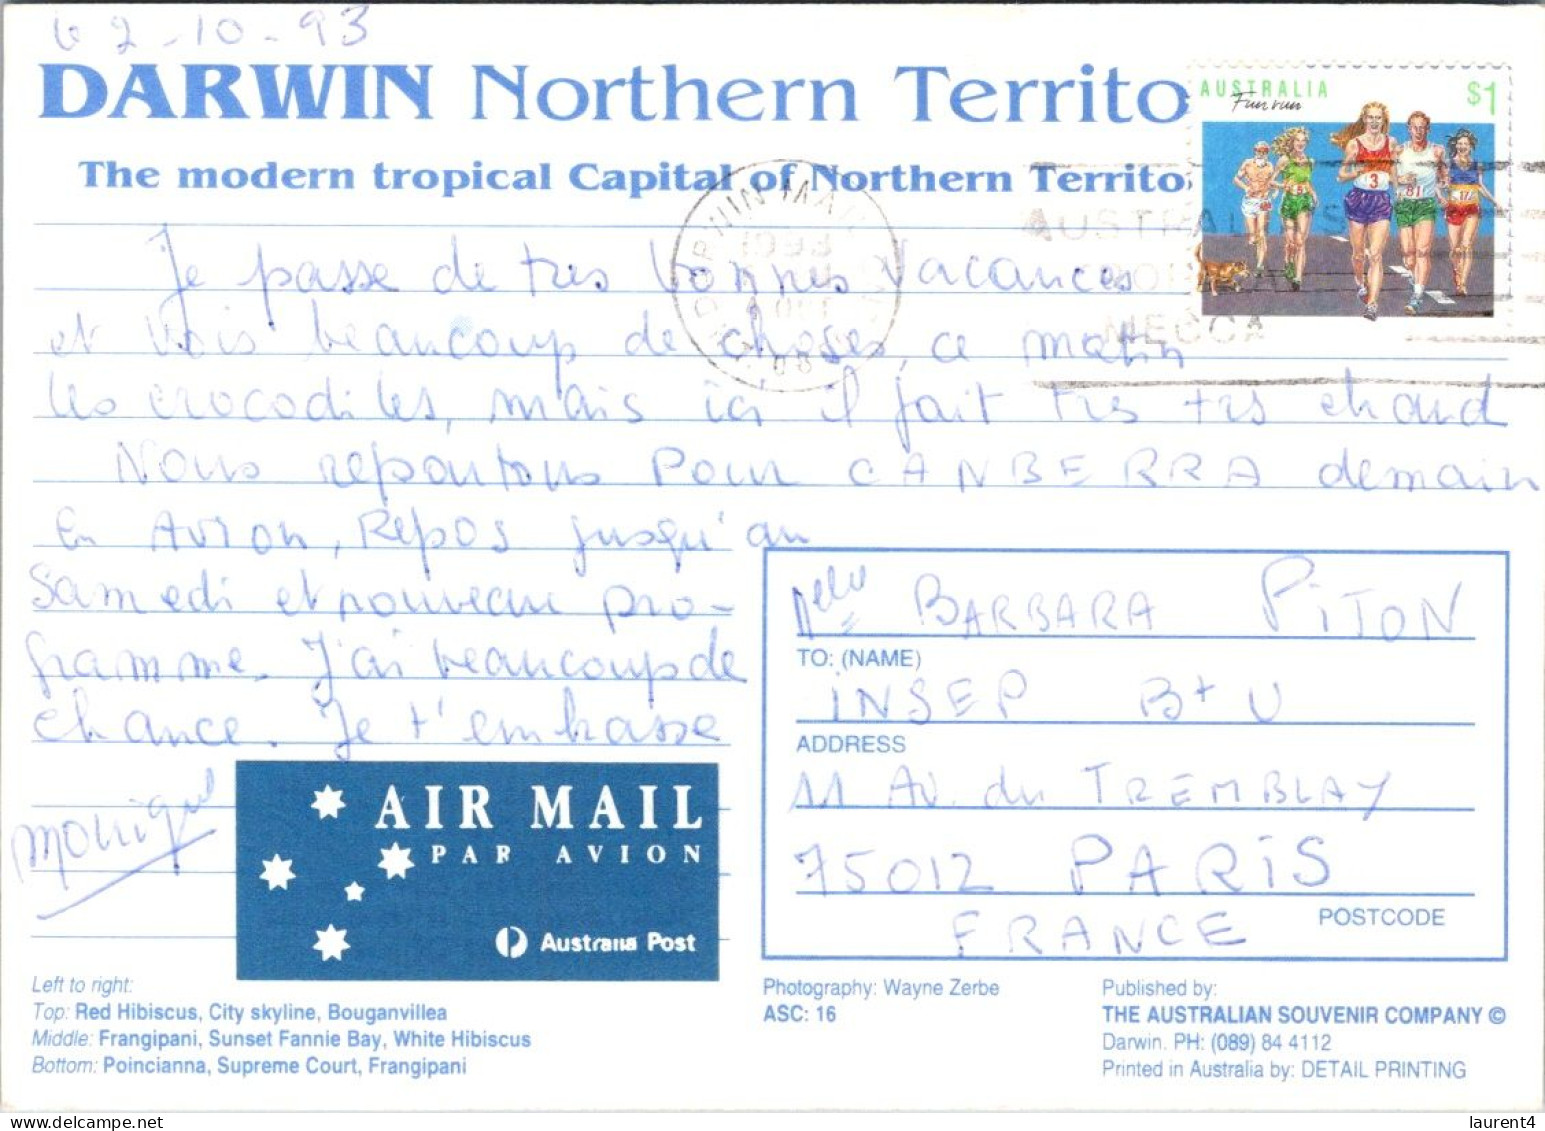 le 2-10-93
DARWIN Northern Territo
AUSTRALIA $1
Fun run
The modern tropical Capital of Northern Territo
DARWIN MAIL
4 OCT
1993
AUSTRALI'S
MECCA
3
81
Je passe de tres bonnes vacances
et vois beaucoup de choses, ce matin
les crocodiles, mais ici il fait tres tres chaud
Nous repartons pour CANBERRA demain
en Avion, Repos jusqu'au
Samedi et nouveau pro-
gramme. J'ai beaucoup de
chance. Je t'embrasse
Monique
Melle BARBARA PITON
TO: (NAME)
INSEP B+U
ADDRESS
11 AV. du TREMBLAY
75012 PARIS
POSTCODE
FRANCE
AIR MAIL
PAR AVION
Australia Post
Left to right:
Top: Red Hibiscus, City skyline, Bouganvillea
Middle: Frangipani, Sunset Fannie Bay, White Hibiscus
Bottom: Poincianna, Supreme Court, Frangipani
Photography: Wayne Zerbe
ASC: 16
Published by:
THE AUSTRALIAN SOUVENIR COMPANY ©
Darwin. PH: (089) 84 4112
Printed in Australia by: DETAIL PRINTING
laurent4